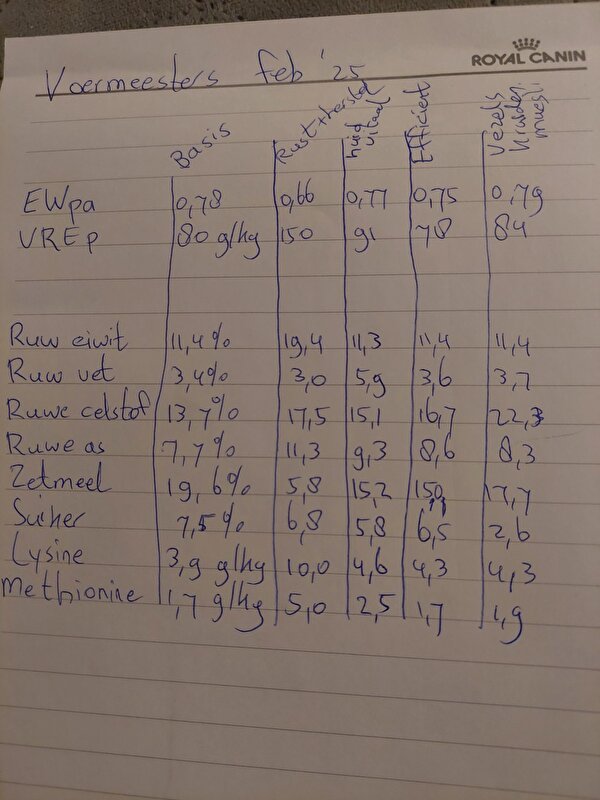 ROYAL CANIN
Voermeesters feb '25
Basis Rust+herstel huid vitaal Efficient Vezels Kruiden muesli
EWpa 0,78 0,66 0,77 0,75 0,79
VREp 80 g/kg 150 91 78 84
Ruw eiwit 11,4% 19,4 11,3 11,4 11,4
Ruw vet 3,4% 3,0 5,9 3,6 3,7
Ruwe celstof 13,7% 17,5 15,1 16,7 22,3
Ruwe as 7,7% 11,3 9,3 8,6 8,3
Zetmeel 19,6% 5,8 15,2 150 17,7
Suiker 7,5% 6,8 5,8 6,5 2,6
Lysine 3,9 g/kg 10,0 4,6 4,3 4,3
Methionine 1,7 g/kg 5,0 2,5 1,7 1,9